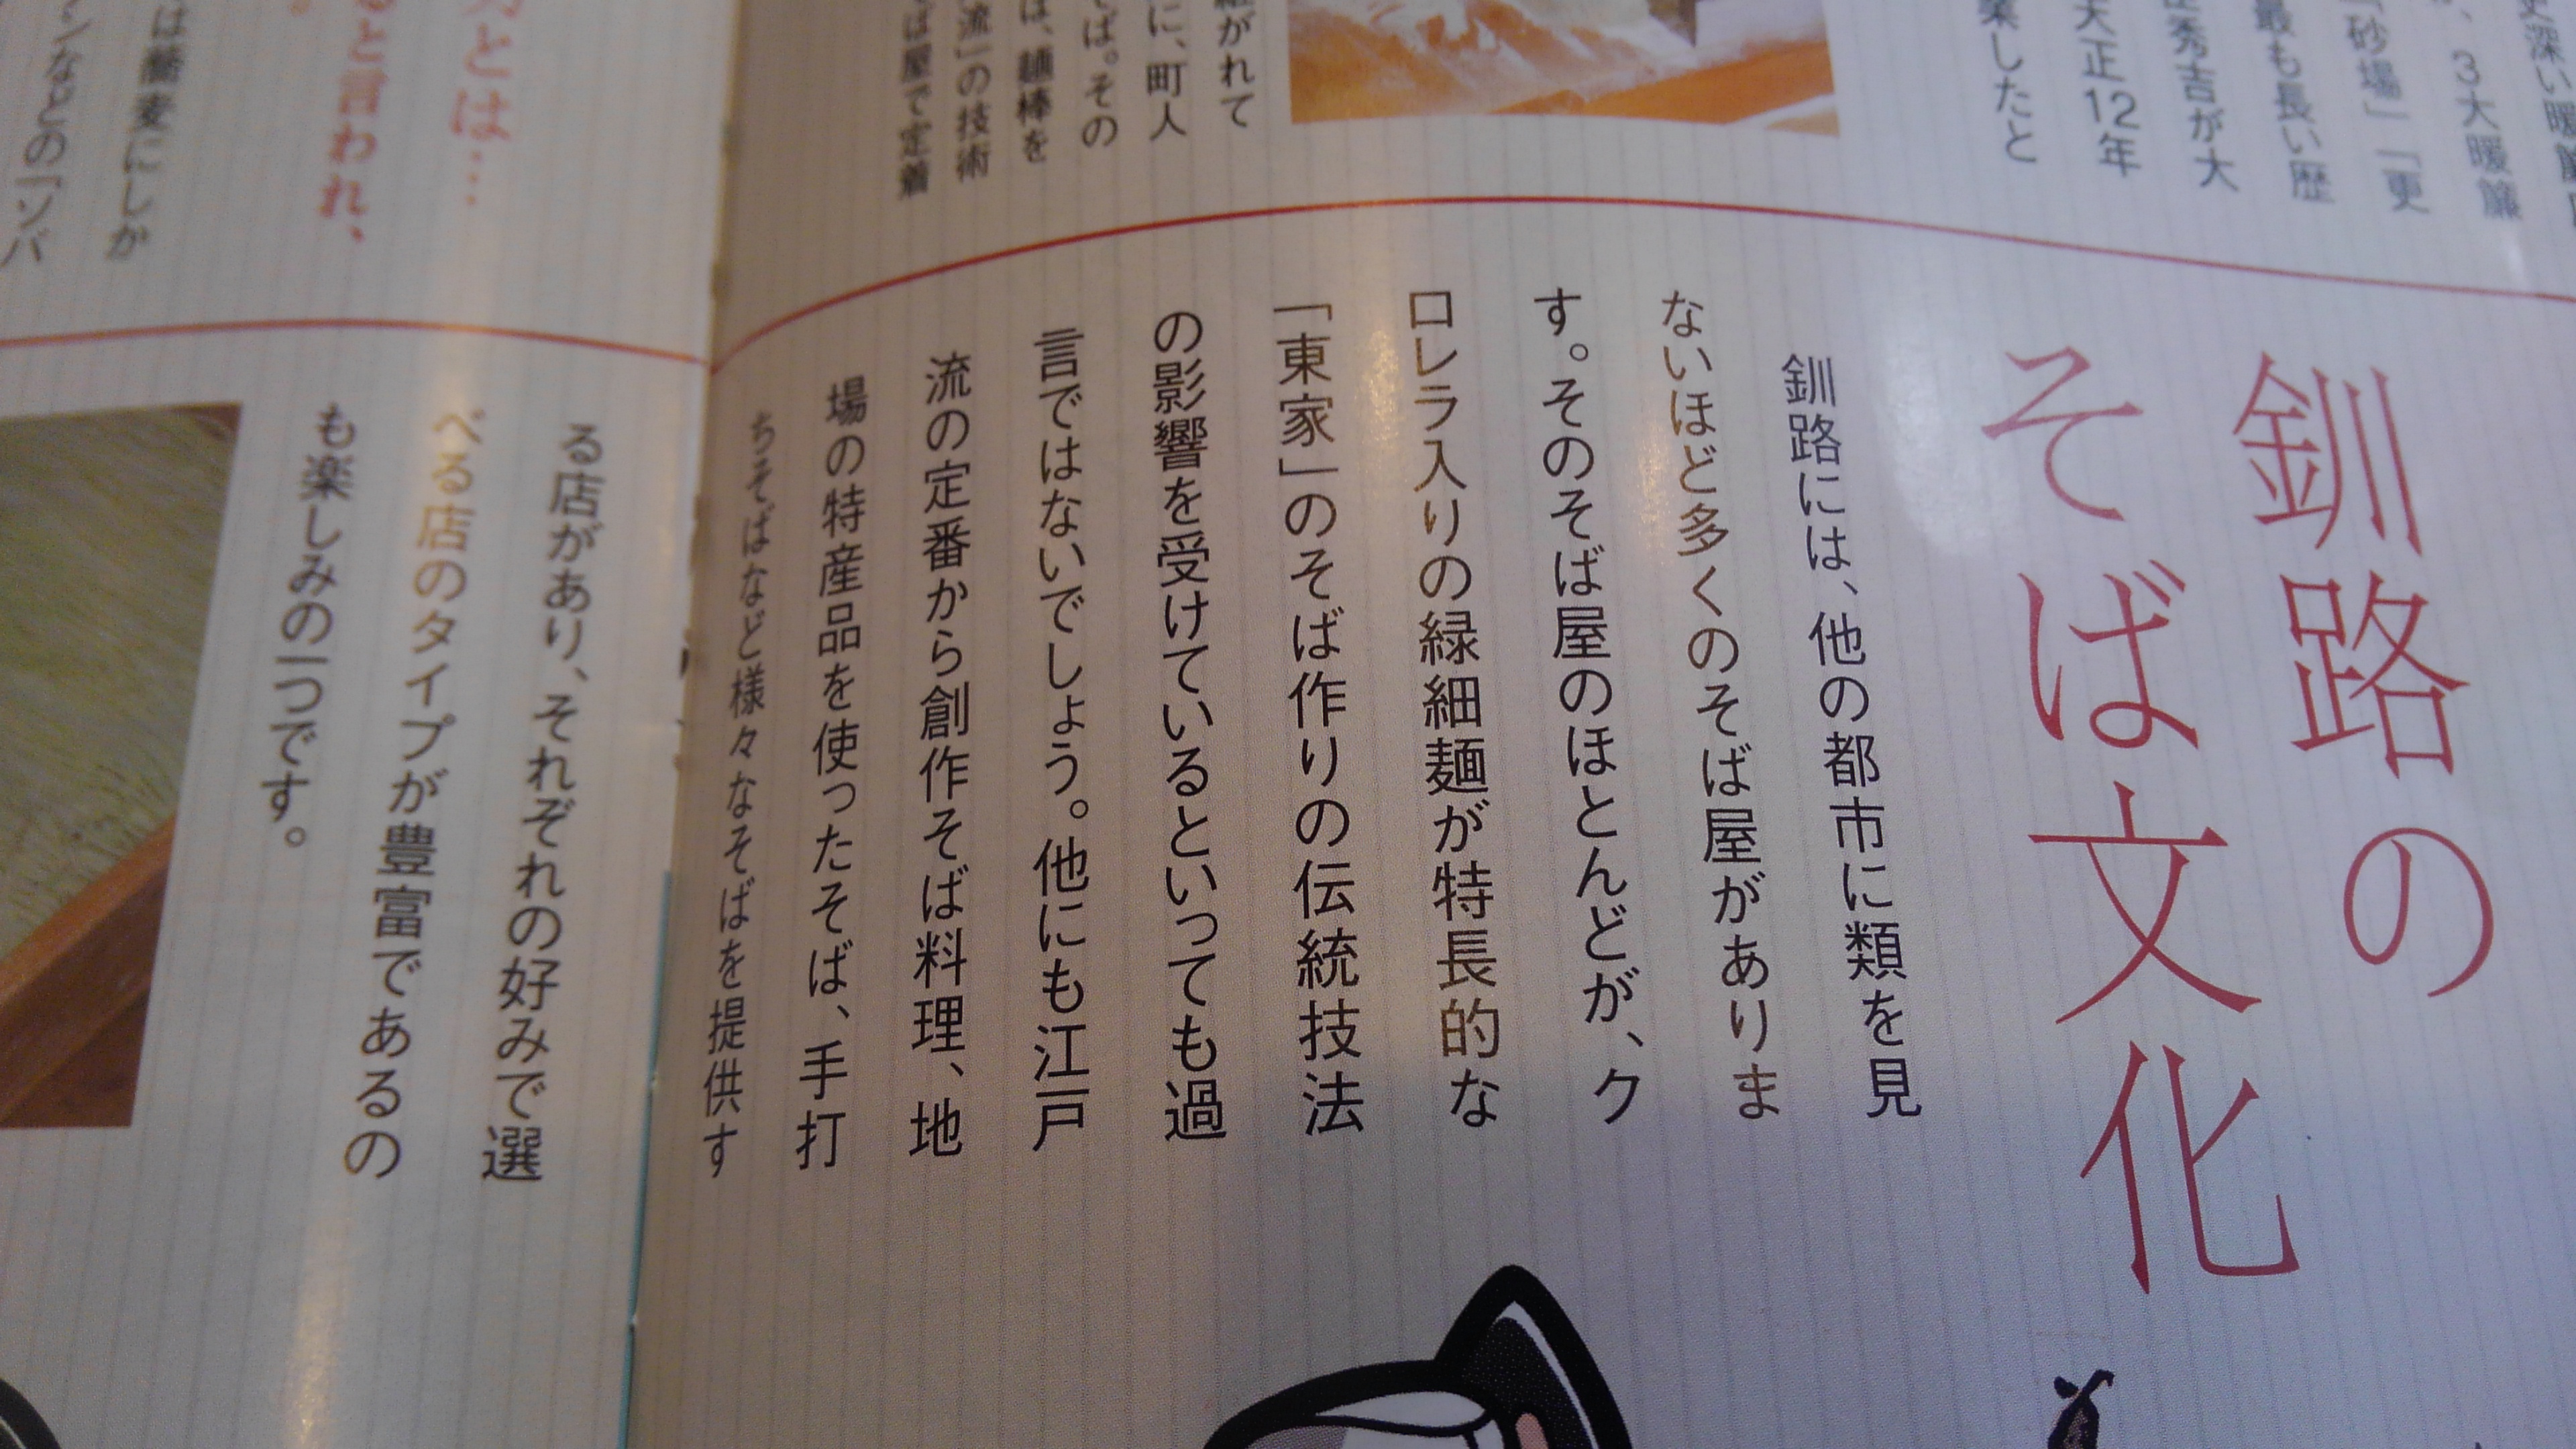 深い暖簾
、3大暖簾
「砂場」「更
最も長い歴
秀吉が大
大正12年
業したと
継がれて
に、町人
ば。その
は、麺棒を
流」の技術
ば屋で定着
とは…
と言われ、
は蕎麦にしか
ンなどの「ソバ
釧路の
そば文化
釧路には、他の都市に類を見
ないほど多くのそば屋がありま
す。そのそば屋のほとんどが、ク
ロレラ入りの緑細麺が特長的な
「東家」のそば作りの伝統技法
の影響を受けているといっても過
言ではないでしょう。他にも江戸
流の定番から創作そば料理、地
場の特産品を使ったそば、手打
ちそばなど様々なそばを提供す
る店があり、それぞれの好みで選
べる店のタイプが豊富であるの
も楽しみの一つです。